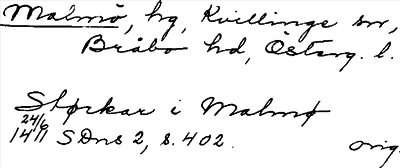 Malmö, hg, Kvillinge sn,
Bråbo hd, Österg. l.
Størkar i Malmø
24/6
1411 SDns 2, s. 402. orig.